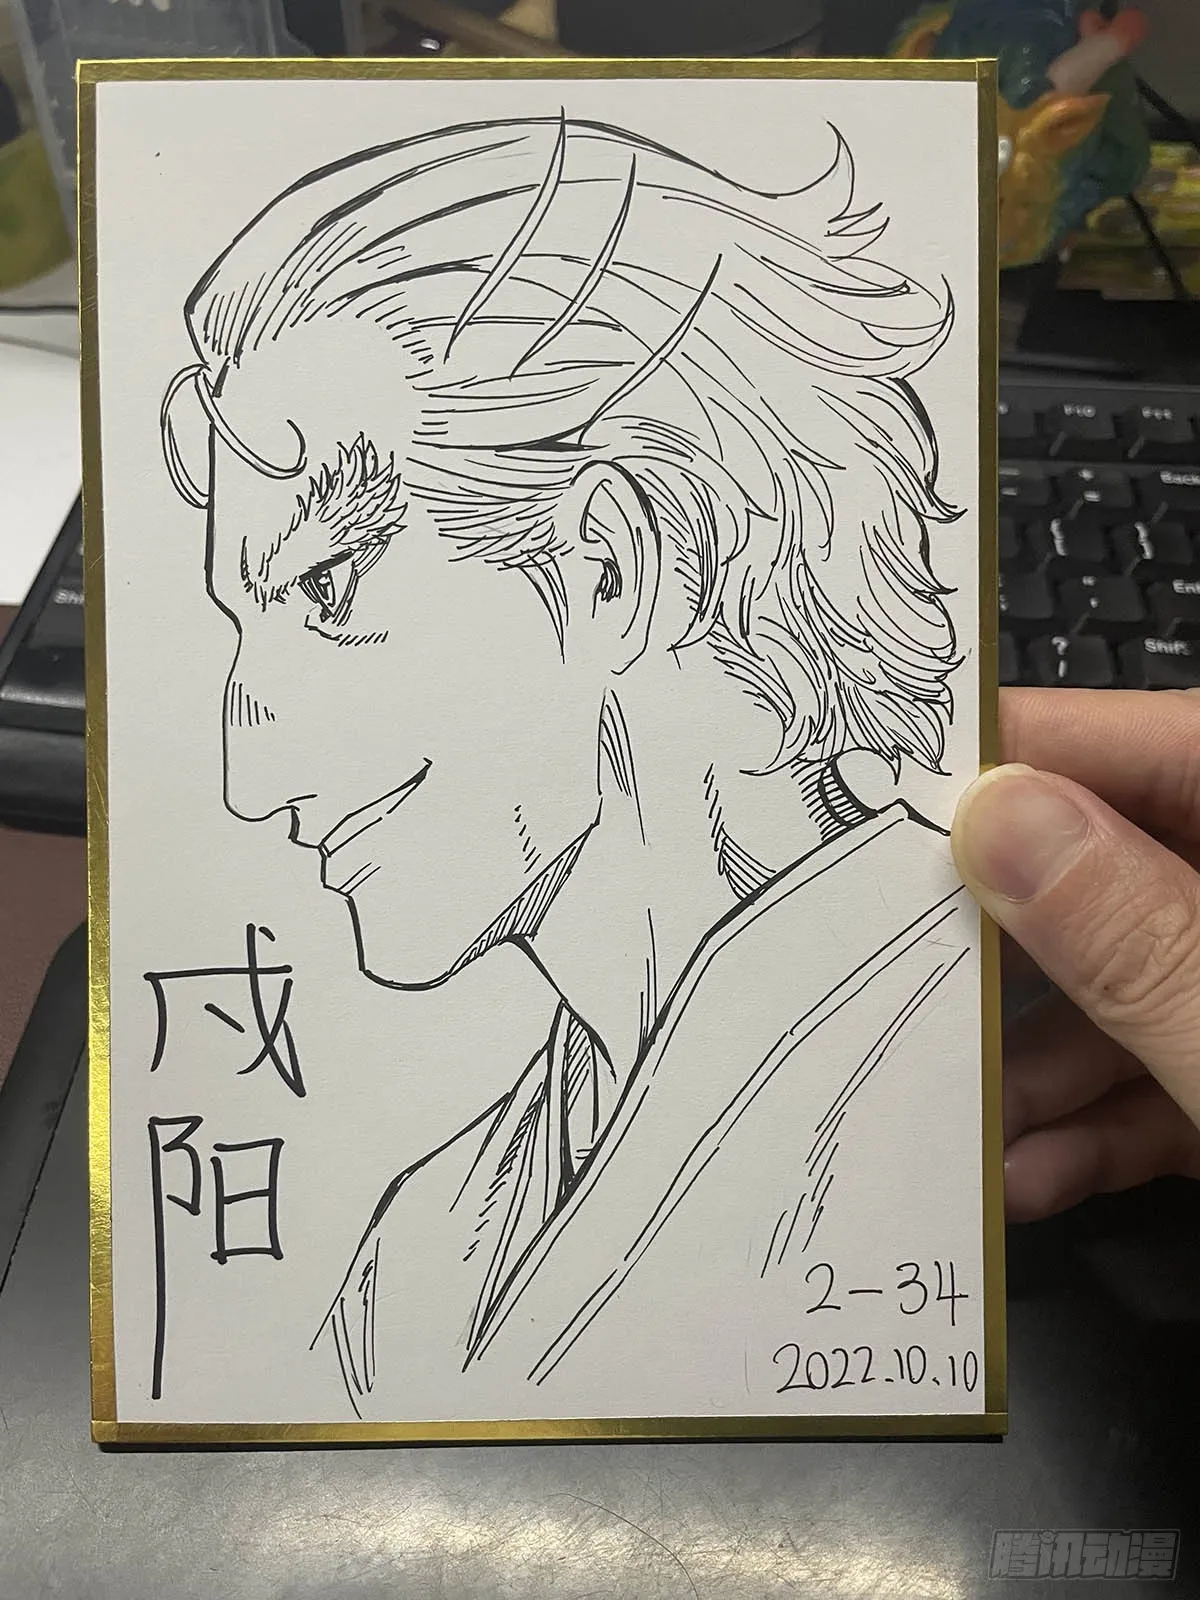 戌
阳
2-34
2022.10.10
F10
F11
Back
Shift
?
/
腾讯动漫